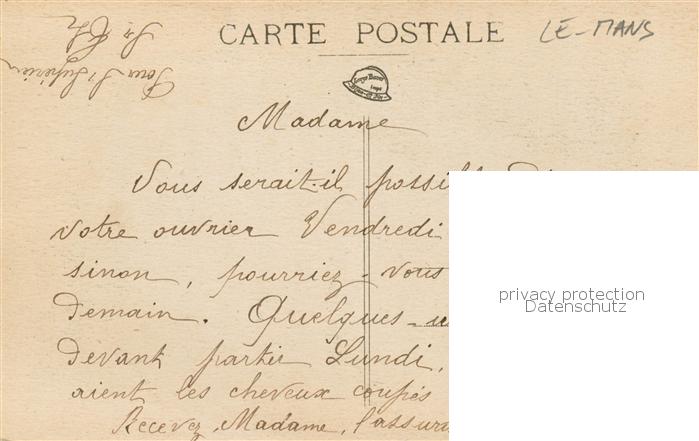 CARTE POSTALE
LE-MANS
Pour
Madame
Vous serait-il
votre ouvrier Vendredi
sinon, pourriez-vous
demain. Quelques-
devant partir Lundi,
aient les cheveux coupés
Recevez, Madame,
privacy protection
Datenschutz